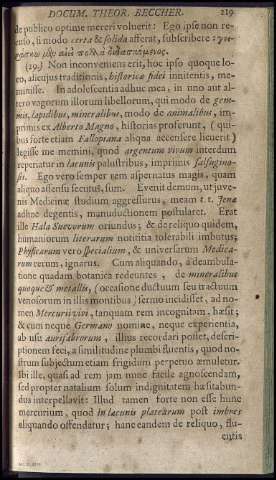 DOCUM. THEOR. BECCHER. 219
de publico optime mereri voluerit: Ego ipse non re-
cuso, si modo certa & solida afferat, subscribere:
(29.) Non inconveniens erit, hoc ipso quoque lo-
co, alicujus traditionis, historicæ fidei innitentis, me-
minisse. In adolescentia adhuc mea, in uno aut al-
tero vagorum illorum libellorum, qui modo de gem-
mis, lapidibus, mineralibus, modo de animalibus, im-
primis ex Alberto Magno, historias proferunt, (qui-
bus forte etiam Fallopiana aliqua accensere liceret)
legisse me memini, quod argentum vivum interdum
reperiatur in lacunis palustribus, imprimis salsugino-
sis. Ego vero semper rem aspernatus magis, quam
aliquo assensu secutus, sum. Evenit demum, ut juve-
nis Medicinæ studium aggressurus, meam t. t. Jenæ
adhuc degentis, manuductionem postularet. Erat
ille Hala Suevorum oriundus; & de reliquo quidem,
humaniorum literarum notitia tolerabili imbutus;
Physicarum vero specialium, & universarum Medica-
rum rerum, ignarus. Cum aliquando, a deambula-
tione quadam botanica redeuntes, de mineralibus
quoque & metallis, (occasione ductuum seu tractuum
venosorum in illis montibus) sermo incidisset, ad no-
men Mercurii vivi, tanquam rem incognitam, hæsit;
& cum neque Germano nomine, neque experientia,
ab usu aurifabrorum, illius recordari posset, descri-
ptionem feci, a similitudine plumbi fluentis, quod no-
strum subjectum etiam frigidum perpetuo æmuletur.
Ibi ille, quasi ad rem jam nunc facile agnoscendam,
sed propter natalium solum indignitatem hæsitabun-
dus interpellavit: Illud tamen forte non esse hunc
mercurium, quod in lacunis platearum post imbres
aliquando offendatur; hanc eandem de reliquo, flu-
entis